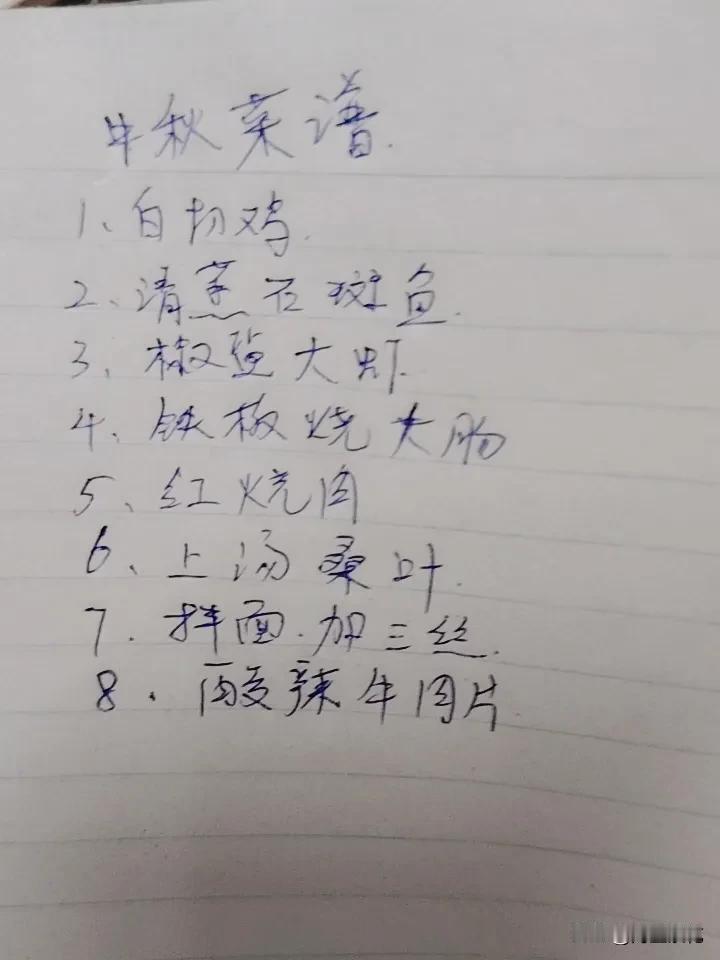 中秋菜谱.
1、白切鸡.
2、清蒸石斑鱼.
3、椒盐大虾.
4、铁板烧大肠
5、红烧肉
6、上汤桑叶.
7.拌面.加三丝.
8.酸辣牛肉片.